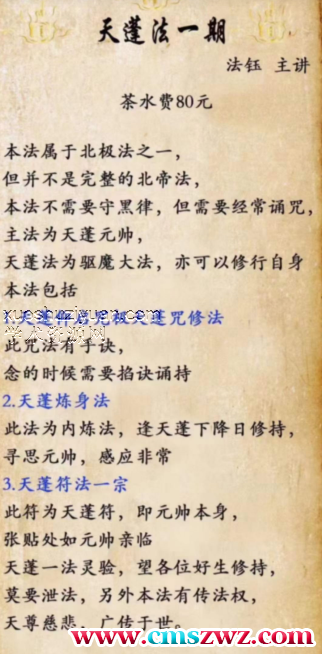 天蓬法一期
法钰 主讲
茶水费80元
本法属于北极法之一，
但并不是完整的北帝法，
本法不需要守黑律，但需要经常诵咒，
主法为天蓬元帅，
天蓬法为驱魔大法，亦可以修行自身
本法包括
1.天蓬符启咒极天蓬咒修法
此咒法有手诀，
念的时候需要掐诀诵持
2.天蓬炼身法
此法为内炼法，逢天蓬下降日修持，
寻思元帅，感应非常
3.天蓬符法一宗
此符为天蓬符，即元帅本身，
张贴处如元帅亲临
天蓬一法灵验，望各位好生修持，
莫要泄法，另外本法有传法权，
天尊慈悲，广传于世。
www.cmszwz.com